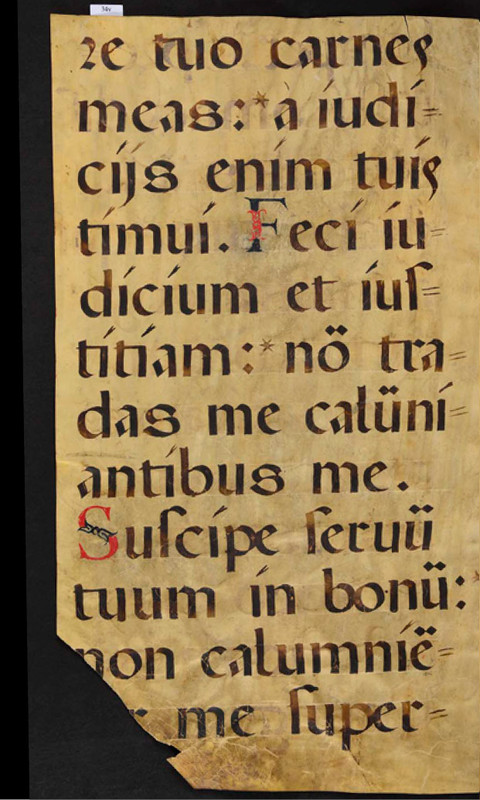 re tuo carnes
meas:* à iudi=
cijs enim tuis
timui. Feci iu=
dicium et iuſ=
titiam:* nö tra=
das me calüni=
antibus me.
Suſcipe ſeruü
tuum in bonü:*
non calumnië=
r me ſuper=